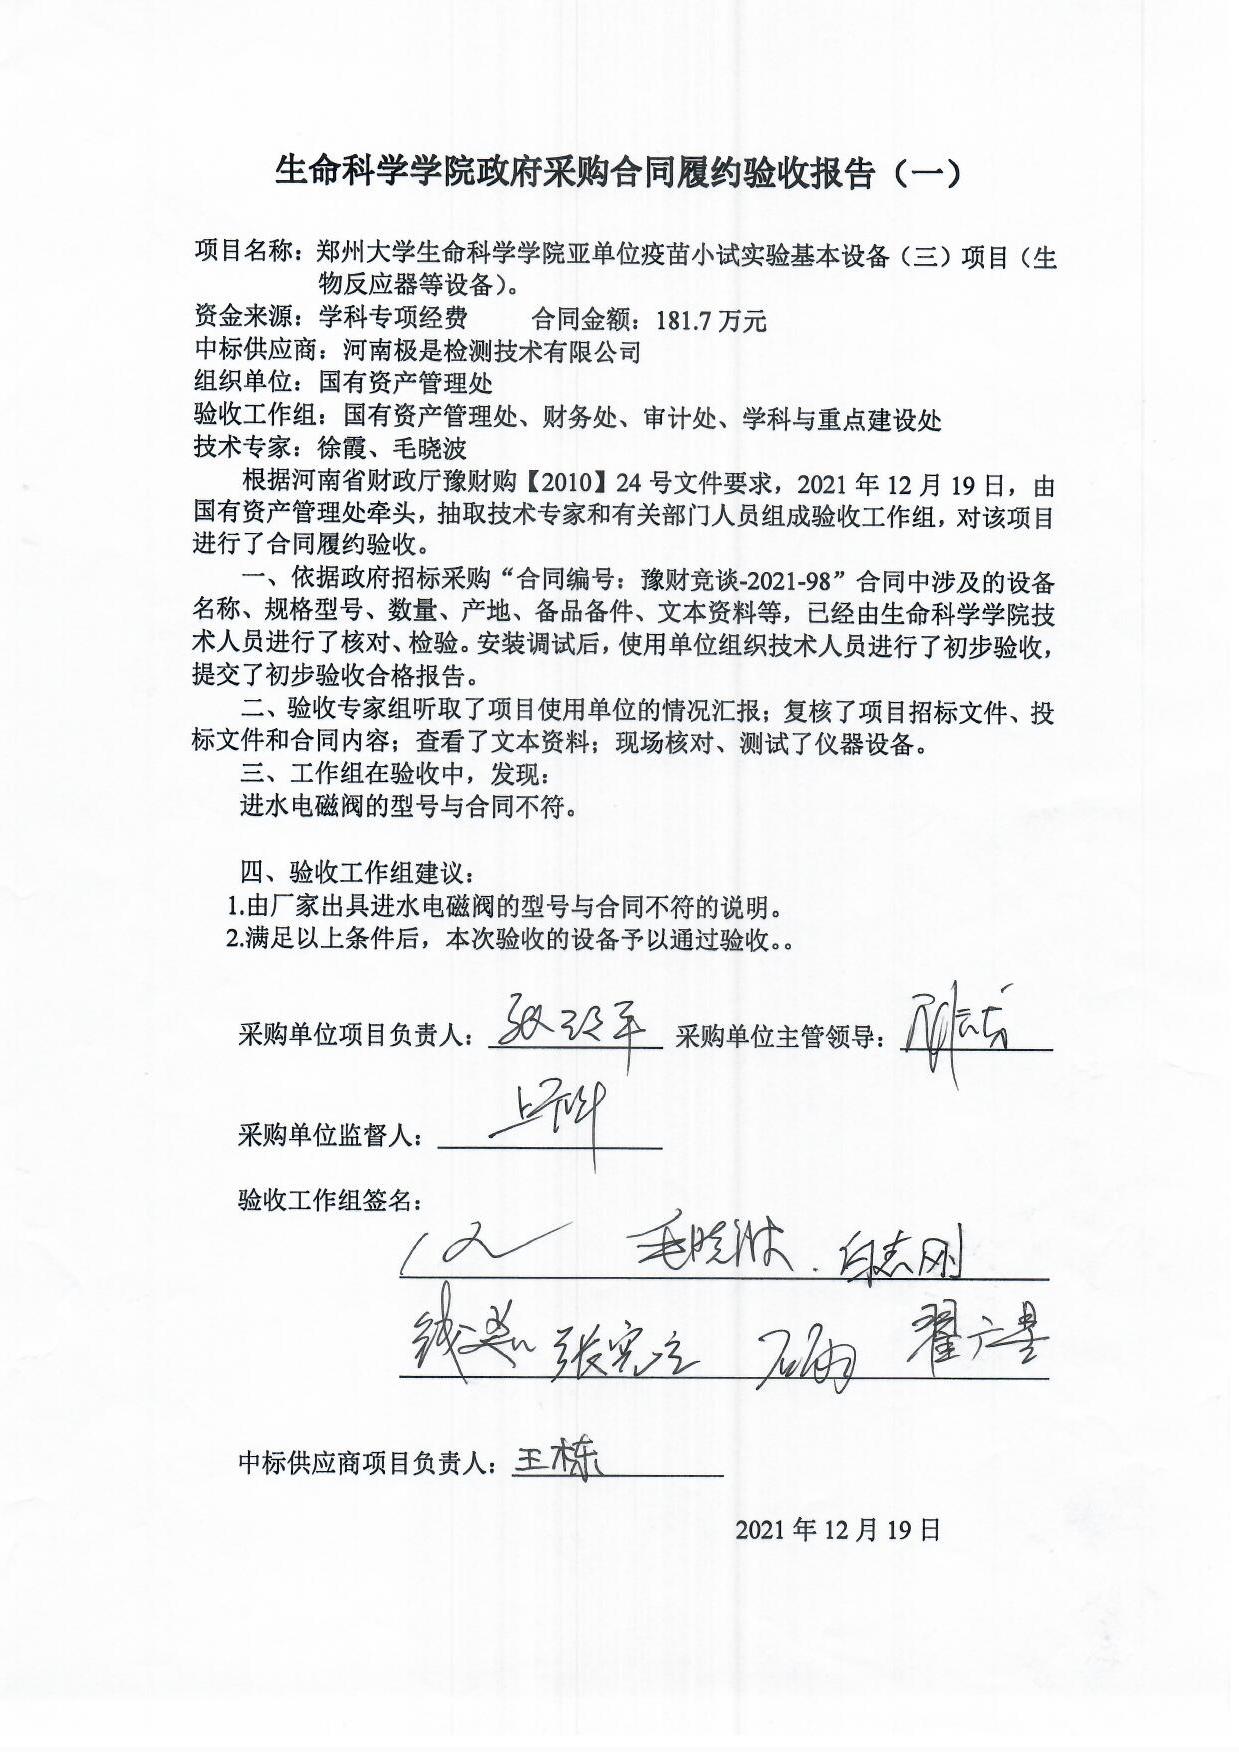 生命科学学院政府采购合同履约验收报告（一）
项目名称：郑州大学生命科学学院亚单位疫苗小试实验基本设备（三）项目（生
物反应器等设备）。
资金来源：学科专项经费 合同金额：181.7 万元
中标供应商：河南极是检测技术有限公司
组织单位：国有资产管理处
验收工作组：国有资产管理处、财务处、审计处、学科与重点建设处
技术专家：徐霞、毛晓波
根据河南省财政厅豫财购【2010】24 号文件要求，2021 年 12 月 19 日，由
国有资产管理处牵头，抽取技术专家和有关部门人员组成验收工作组，对该项目
进行了合同履约验收。
一、依据政府招标采购“合同编号：豫财竞谈-2021-98”合同中涉及的设备
名称、规格型号、数量、产地、备品备件、文本资料等，已经由生命科学学院技
术人员进行了核对、检验。安装调试后，使用单位组织技术人员进行了初步验收，
提交了初步验收合格报告。
二、验收专家组听取了项目使用单位的情况汇报；复核了项目招标文件、投
标文件和合同内容；查看了文本资料；现场核对、测试了仪器设备。
三、工作组在验收中，发现：
进水电磁阀的型号与合同不符。
四、验收工作组建议：
1.由厂家出具进水电磁阀的型号与合同不符的说明。
2.满足以上条件后，本次验收的设备予以通过验收。。
采购单位项目负责人： 采购单位主管领导：
采购单位监督人：
验收工作组签名：
毛晓波 白志刚
张宪立 石雨 翟广星
中标供应商项目负责人：王栋
2021 年 12 月 19 日